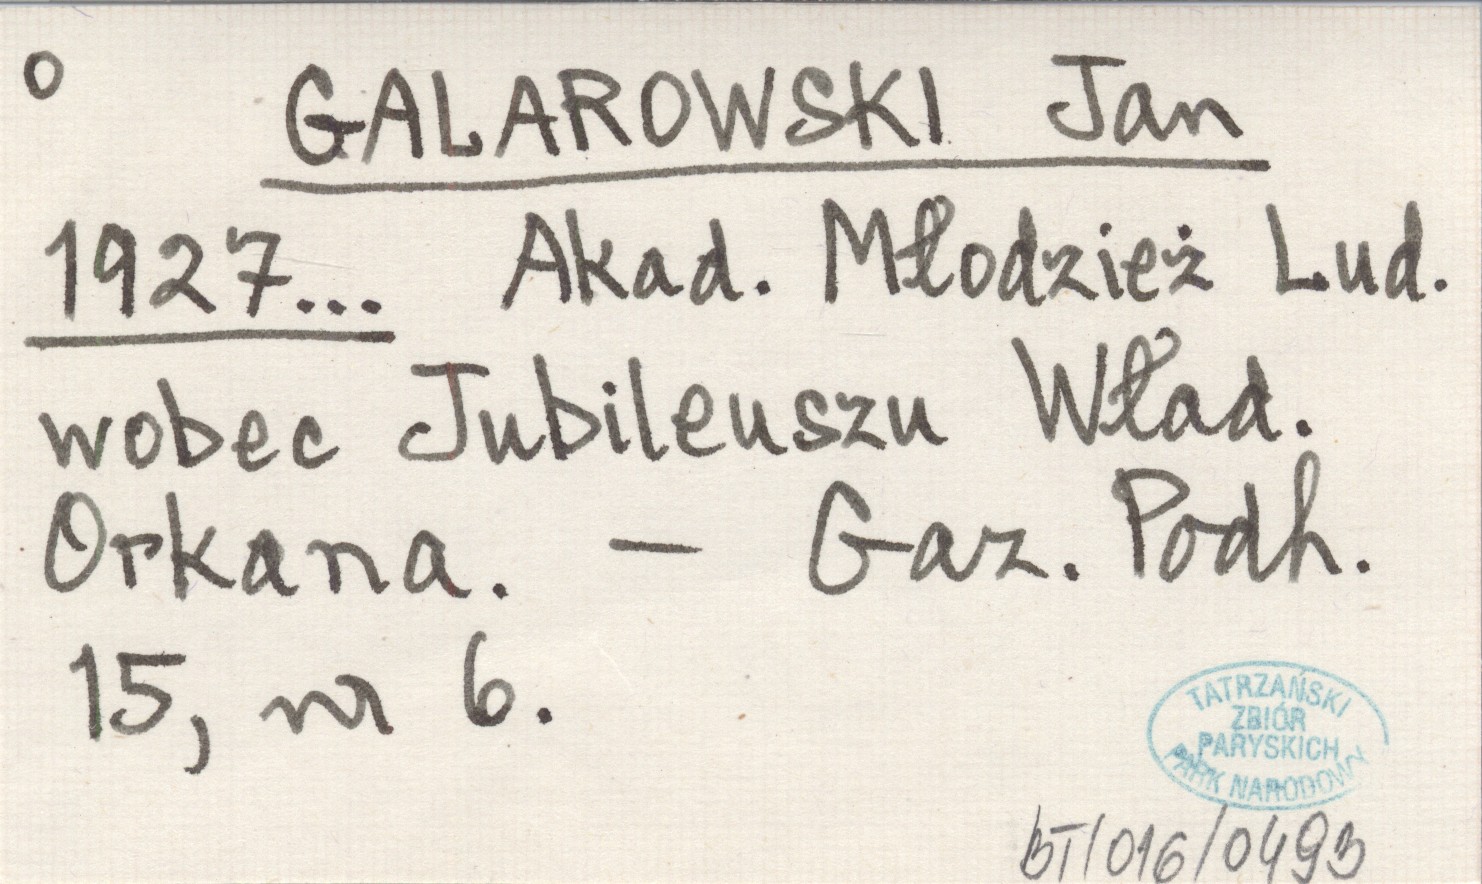 o GALAROWSKI Jan
1927... Akad. Młodzież Lud.
wobec Jubileuszu Wład.
Orkana. — Gaz. Podh.
15, nr 6.
TATRZAŃSKI
ZBIÓR
PARYSKICH
PARK NARODOWY
BT/016/0493